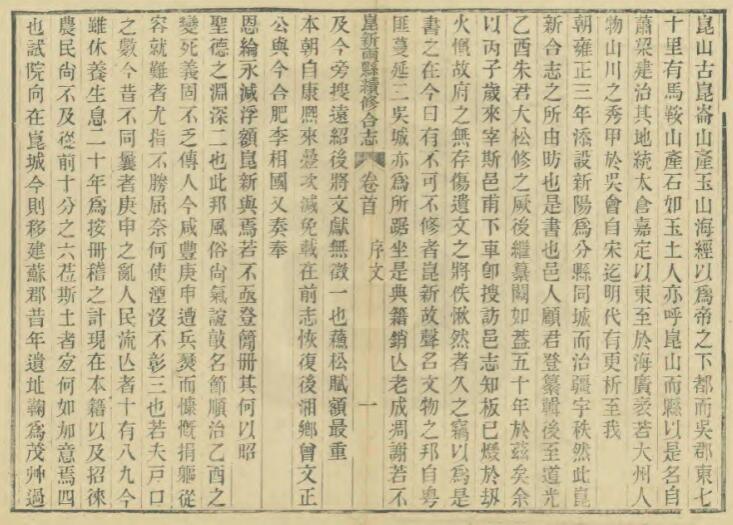 崑山古崑崙山產玉山海經以爲帝之下都而吳郡東七
十里有馬鞍山產石如玉土人亦呼崑山而縣以是名自
蕭梁建治其地統太倉嘉定以東至於海廣袤若大州人
物山川之秀甲於吳會自宋迄明代有更析至我
朝雍正三年添設新陽爲分縣同城而治疆宇秩然此崑
新合志之所由昉也是書也邑人顧君登纂輯後至道光
乙酉朱君大松修之厥後繼纂闕如蓋五十年於茲矣余
以丙子歲來宰斯邑甫下車卽搜訪邑志知板已燬於刼
火慨故府之無存傷遺文之將佚愀然者久之竊以爲是
書之在今日有不可不修者崑新故聲名文物之邦自粵
匪蔓延三吳城亦爲所踞坐是典籍銷亾老成凋謝若不
崑新兩縣續修合志
卷首
序文
一
及今旁搜遠紹後將文獻無徵一也蘓松賦額最重
本朝自康熙來疊次減免載在前志恢復後湘鄉曾文正
公與今合肥李相國又奏奉
恩綸永減浮額崑新與焉若不亟登簡冊其何以昭
聖德之淵深二也此邦風俗尙氣誼敦名節順治乙酉之
變死義固不乏傳人今咸豐庚申遭兵燹而慷慨捐軀從
容就難者尤指不勝屈奈何使湮沒不彰三也若夫戸口
之數今昔不同曩者庚申之亂人民流亾者十有八九今
雖休養生息二十年爲按冊稽之計現在本籍以及招徠
農民尙不及從前十分之六蒞斯土者宜何如加意焉四
也試院向在崑城今則移建蘇郡昔年遺址鞠爲茂艸過